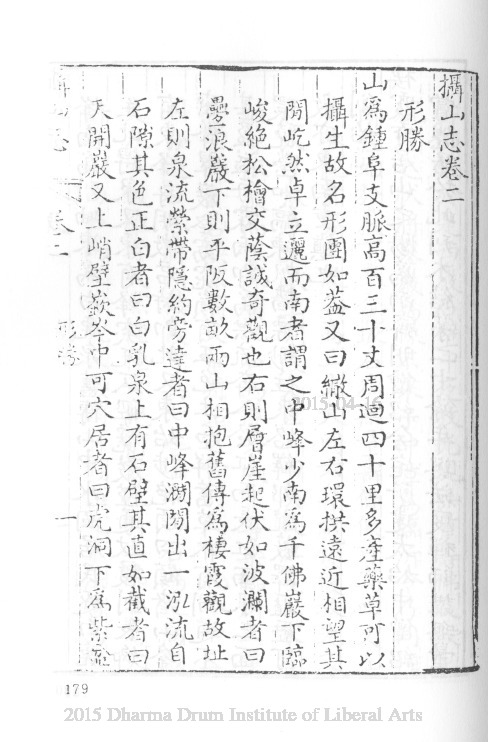 攝山志卷二
形勝
山爲鍾阜支脈高百三十丈周迴四十里多產藥草可以
攝生故名形團如蓋又曰繖山左右環拱遠近相望其
間屹然卓立邐而南者謂之中峰少南爲千佛巖下臨
峻絕松檜交蔭誠奇觀也右則層崖起伏如波瀾者曰
疊浪巖下則平阪數畝兩山相抱舊傳爲棲霞觀故址
左則泉流縈帶隱約旁達者曰中峰澗閒出一泓流自
石隙其色正白者曰白乳泉上有石壁其直如截者曰
天開巖又上峭壁嶔岑中可穴居者曰虎洞下爲紫
山志 卷二 形勝 一
2015-04-16
179
2015 Dharma Drum Institute of Liberal Arts